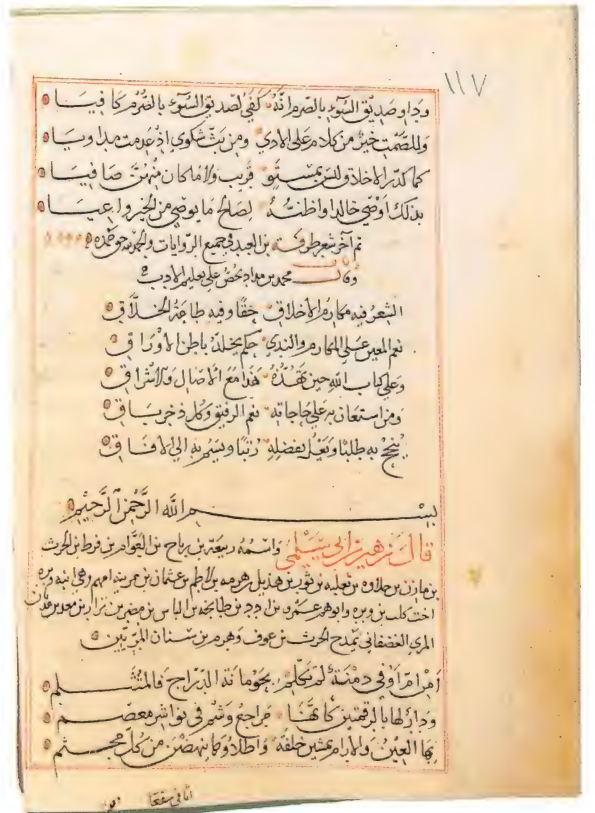 ١١٧
وداو صديق السّوء بالصرم انّه كفى لصديق السّوء بالصّرم كافيا
وللصّمت خير من كلام على الاذى ومن بثّ شكوى اذ عدمت مداويا
كما كدر الاخلاق ليس بمستو قريب ولا ما كان منهنّ صافيا
بذلك اوصى خالدا واظنّه لصالح ما يوصي من الخير واعيا
تم آخر شعر طرفة بن العبد في جميع الروايات والحمد لله حق حمده
وقال محمد بن مداد يحض على تعليم الادب
الشعر فيه مكارم الأخلاق حقا وفيه طاعة الخلّاق
نعم المعين على المكارم والندى حكم يخلد باطن الاوراق
وعلى كتاب الله حين تهذّه هذا مع الآصال والاشراق
ومن استعان به على حاجاته نعم الرفيق وكل ذخر باق
ينجح به طلبا وتعل بفضله رتبا ويسم به الى الآفاق
بسم الله الرّحمن الرّحيم
قال زهير بن ابي سلمى واسمه ربيعة بن رياح بن العوام بن قرط بن الحرث
بن مازن بن حلاوة بن ثعلبة بن ثور بن هذيل بن هرمة بن لاطم بن عثمان بن مزينة امهم وهي ابنة وبرة
اخت كلب بن وبرة وابوهم عمرو بن ادد بن طابخة بن الياس بن مضر بن نزار بن معد بن عدنان
المري الغضفاني يمدح الحرث بن عوف وهرم بن سنان المريين
أمن امّ اوفى دمنة لم تكلّم بحومانة الدّرّاج فالمتثلّم
ودار لها بالرقمتين كانّها مراجع وشم في نواشر معصم
بها العين والارام يمشين خلفة واطلاؤها ينهضن من كل مجثم
اثافي سفعا